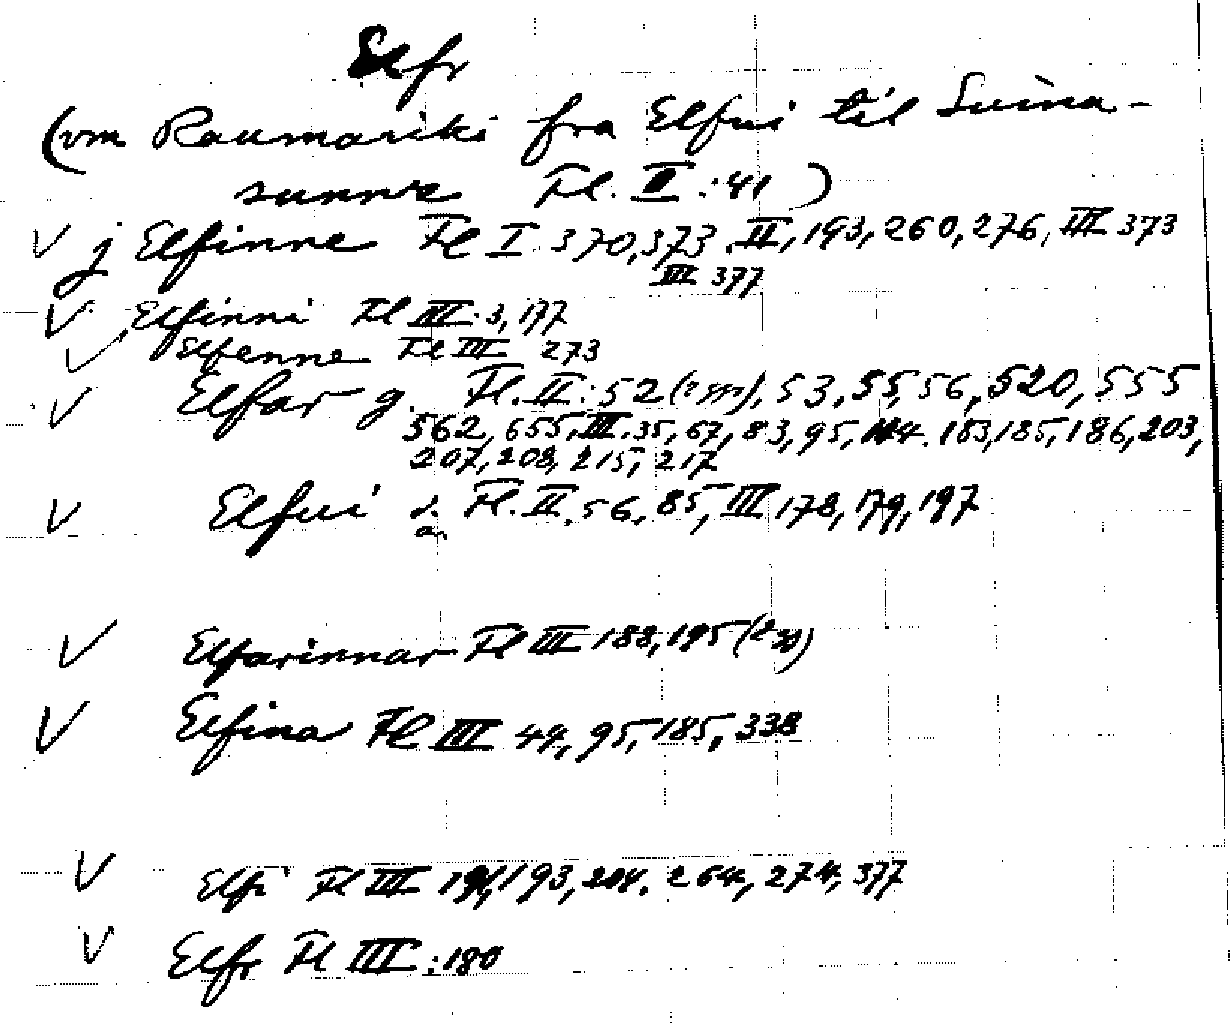 Elfr
(vm Raumariki fra Elfui til Suina-
sunnz Fl. II :41 )
V j Elfinne Fl I. 370,373 II, 193, 260, 276, III 373
III 377
V Elfinni Fl III. 3, 177
V Elfenne Fl III 273
V Elfar g. Fl. II: 52 (2 sp), 53, 55, 56, 520, 555
562, 655, III. 35, 67, 83, 95, 183, 185, 186, 203,
207, 208, 215, 217
V Elfui d. Fl. II. 56, 85, III 178, 179, 197
a.
V Elfarinnar Fl III 188, 195 (2 sp)
V Elfina Fl III 49, 95, 185, 338
V Elfi Fl III 193, 204. 264, 274, 377
V Elfr Fl III :180